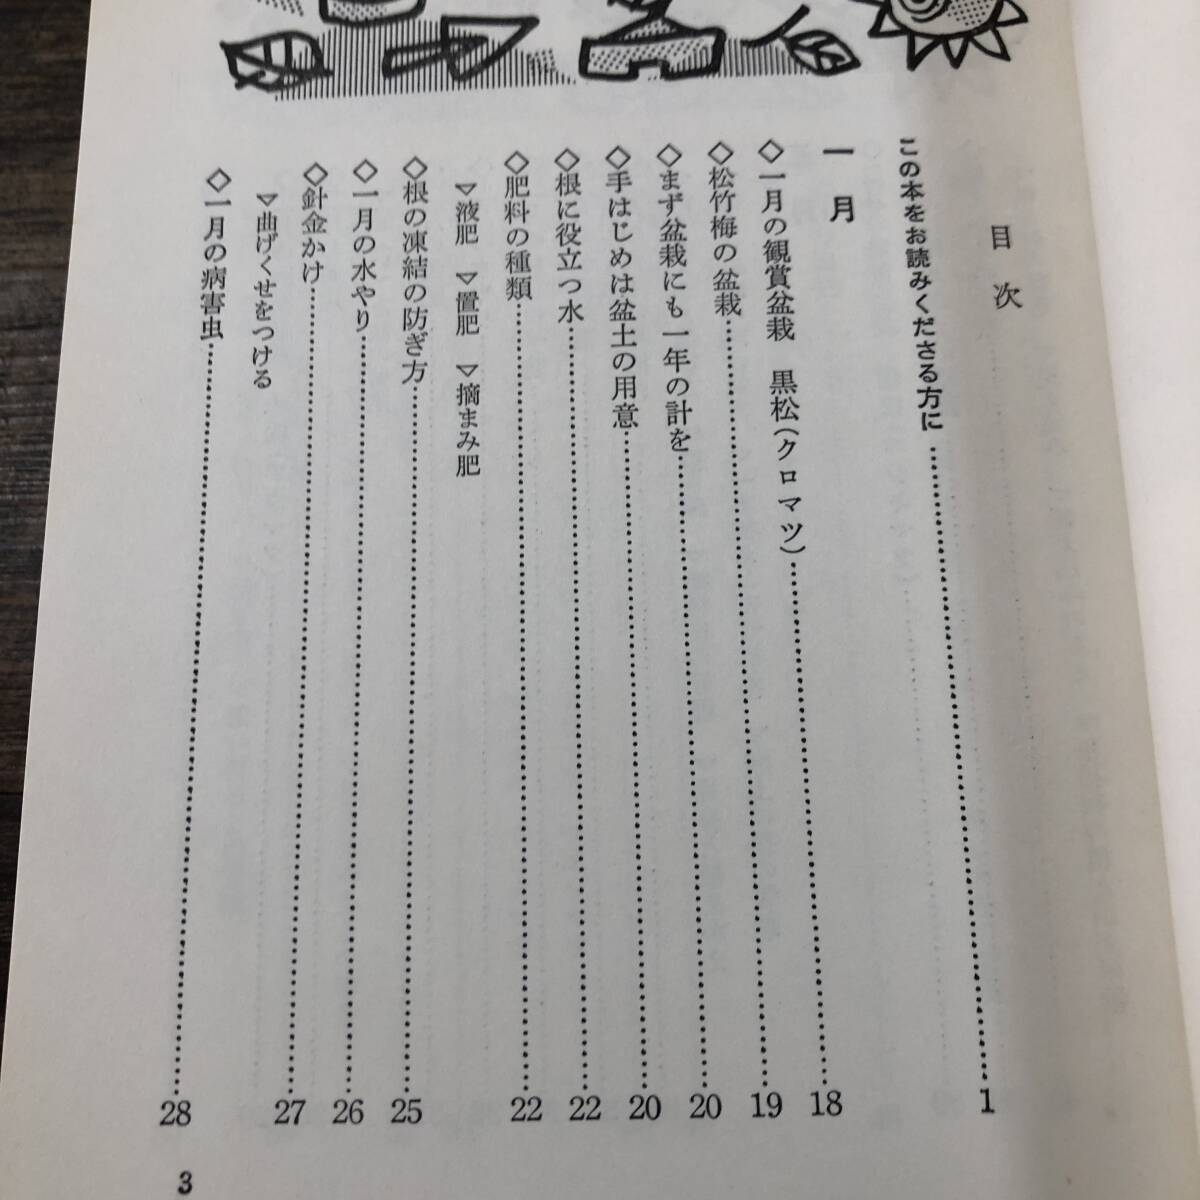 目次
この本をお読みくださる方に……1
一月
◇一月の観賞盆栽　黒松（クロマツ）……18
◇松竹梅の盆栽……19
◇まず盆栽にも一年の計を……20
◇手はじめは盆土の用意……20
◇根に役立つ水……22
◇肥料の種類……22
▽液肥　▽置肥　▽摘まみ肥
◇根の凍結の防ぎ方……25
◇一月の水やり……26
◇針金かけ……27
▽曲げくせをつける
◇一月の病害虫……28
3